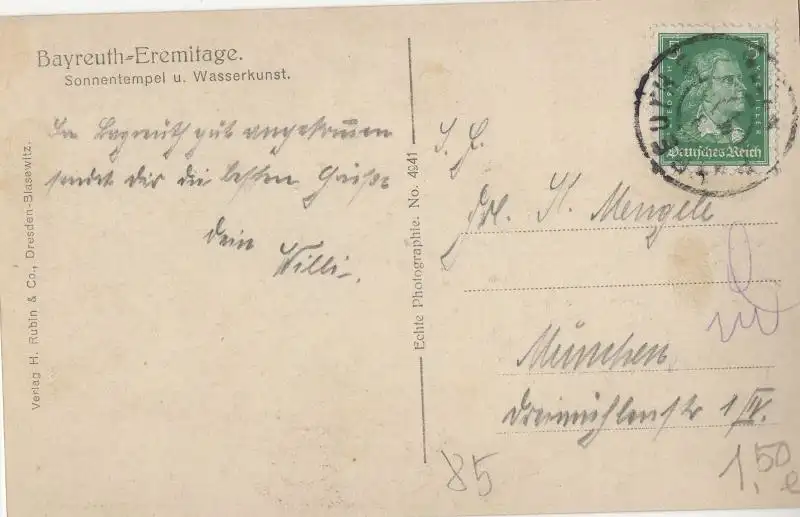 Bayreuth-Eremitage.
Sonnentempel u. Wasserkunst.
In Bayreuth gut angekommen
sendet dir die besten Grüße
dein
Willi.
Verlag H. Rubin & Co., Dresden-Blasewitz.
Echte Photographie. No. 4941
5
Deutsches Reich
5
BAYREUTH
S. H.
Frl. K. Mengele
München
Dreimühlenstr 1/IV.
85
1,50